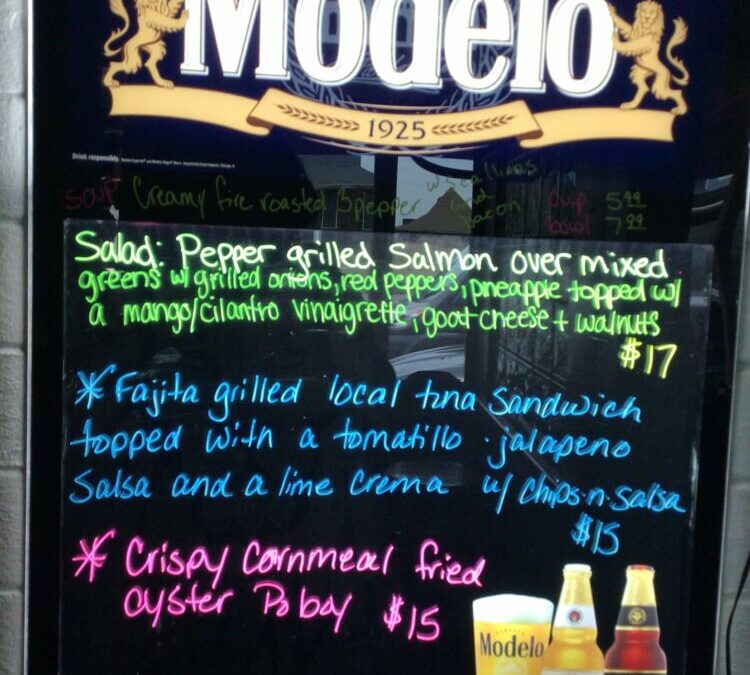 Modelo
1925
Drink responsibly.
Soup Creamy fire roasted 3 pepper w/ scallions and bacon cup 5.99
bowl 7.99
Salad: Pepper grilled Salmon over mixed
greens w/ grilled onions, red peppers, pineapple topped w/
a mango/cilantro vinaigrette, goat cheese + walnuts
$17
* Fajita grilled local tuna Sandwich
topped with a tomatillo - jalapeno
Salsa and a lime Crema w/ chips-n-salsa
$15
* Crispy Cornmeal fried
oyster Po boy $15
Modelo